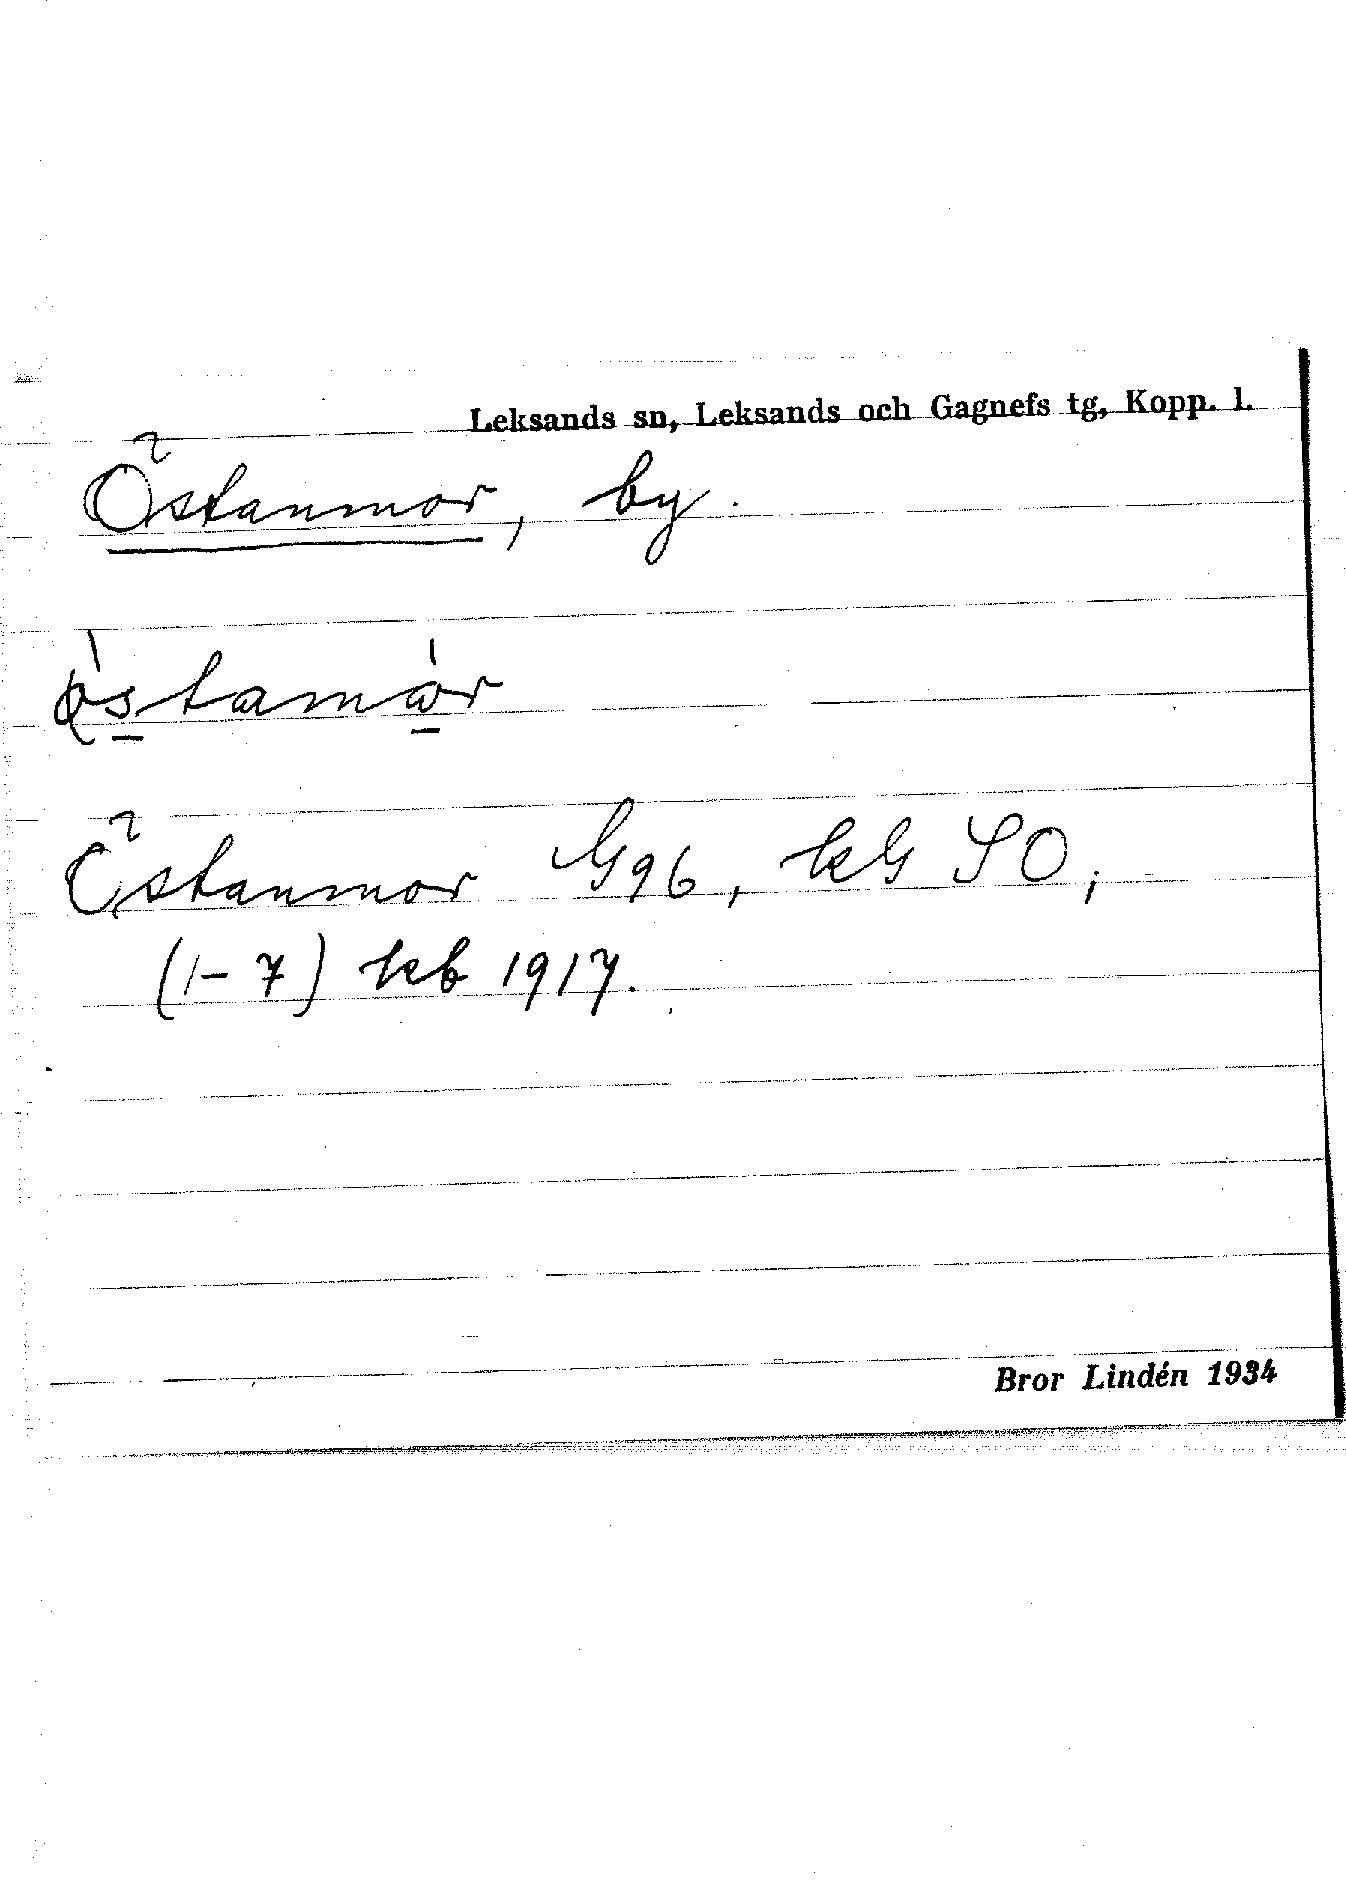 Leksands sn, Leksands och Gagnefs tg, Kopp. l.
Östanmor, by.
östamår
Östanmor G96, kG SO;
(1-7) kb 1917.
Bror Lindén 1934